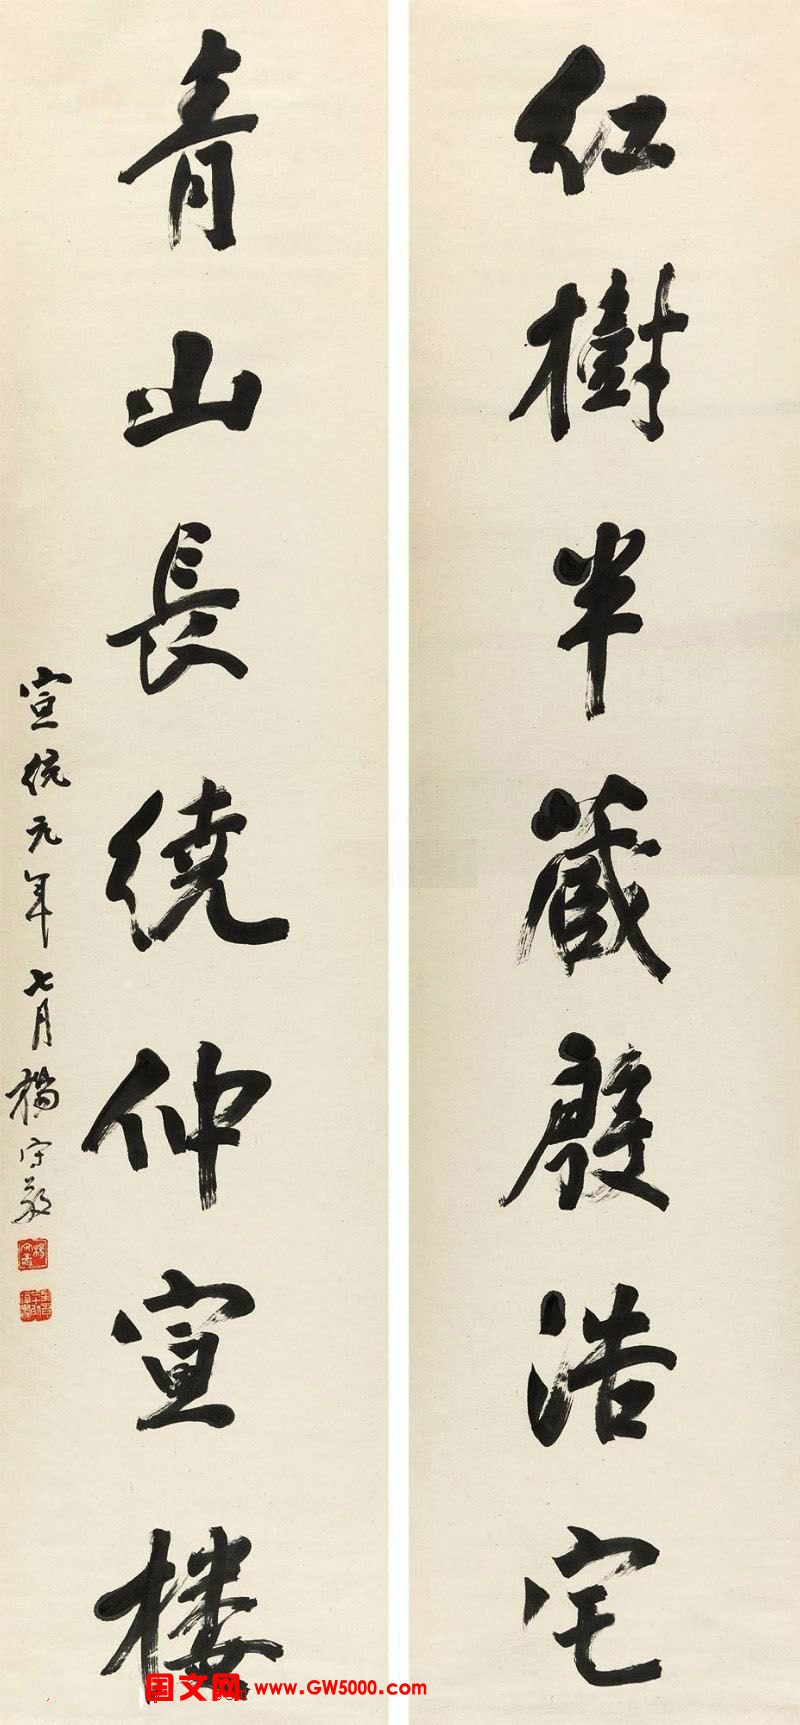 红樹半藏殷浩宅
青山長繞仲宣楼
宣統元年七月楊守敬
国文网 www.GW5000.com